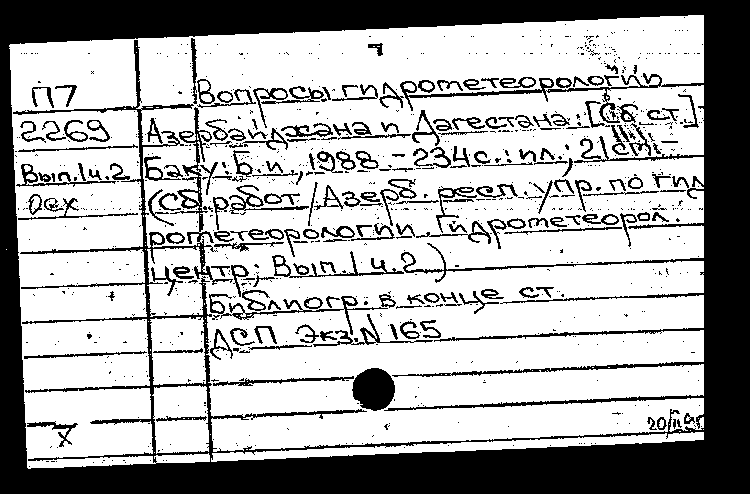 7
П7 Вопросы гидрометеорологии
2269 Азербайджана и Дагестана: [Сб ст.]
Вып.1 ч.2 Баку: Б.и., 1988. - 234с.: ил.; 21см. -
(Сб работ / Азерб. респ. упр. по гид
рометеорологии. Гидрометеорол.
центр; Вып.1 ч.2).
Библиогр. в конце ст.
ДСП Экз.N 165
X